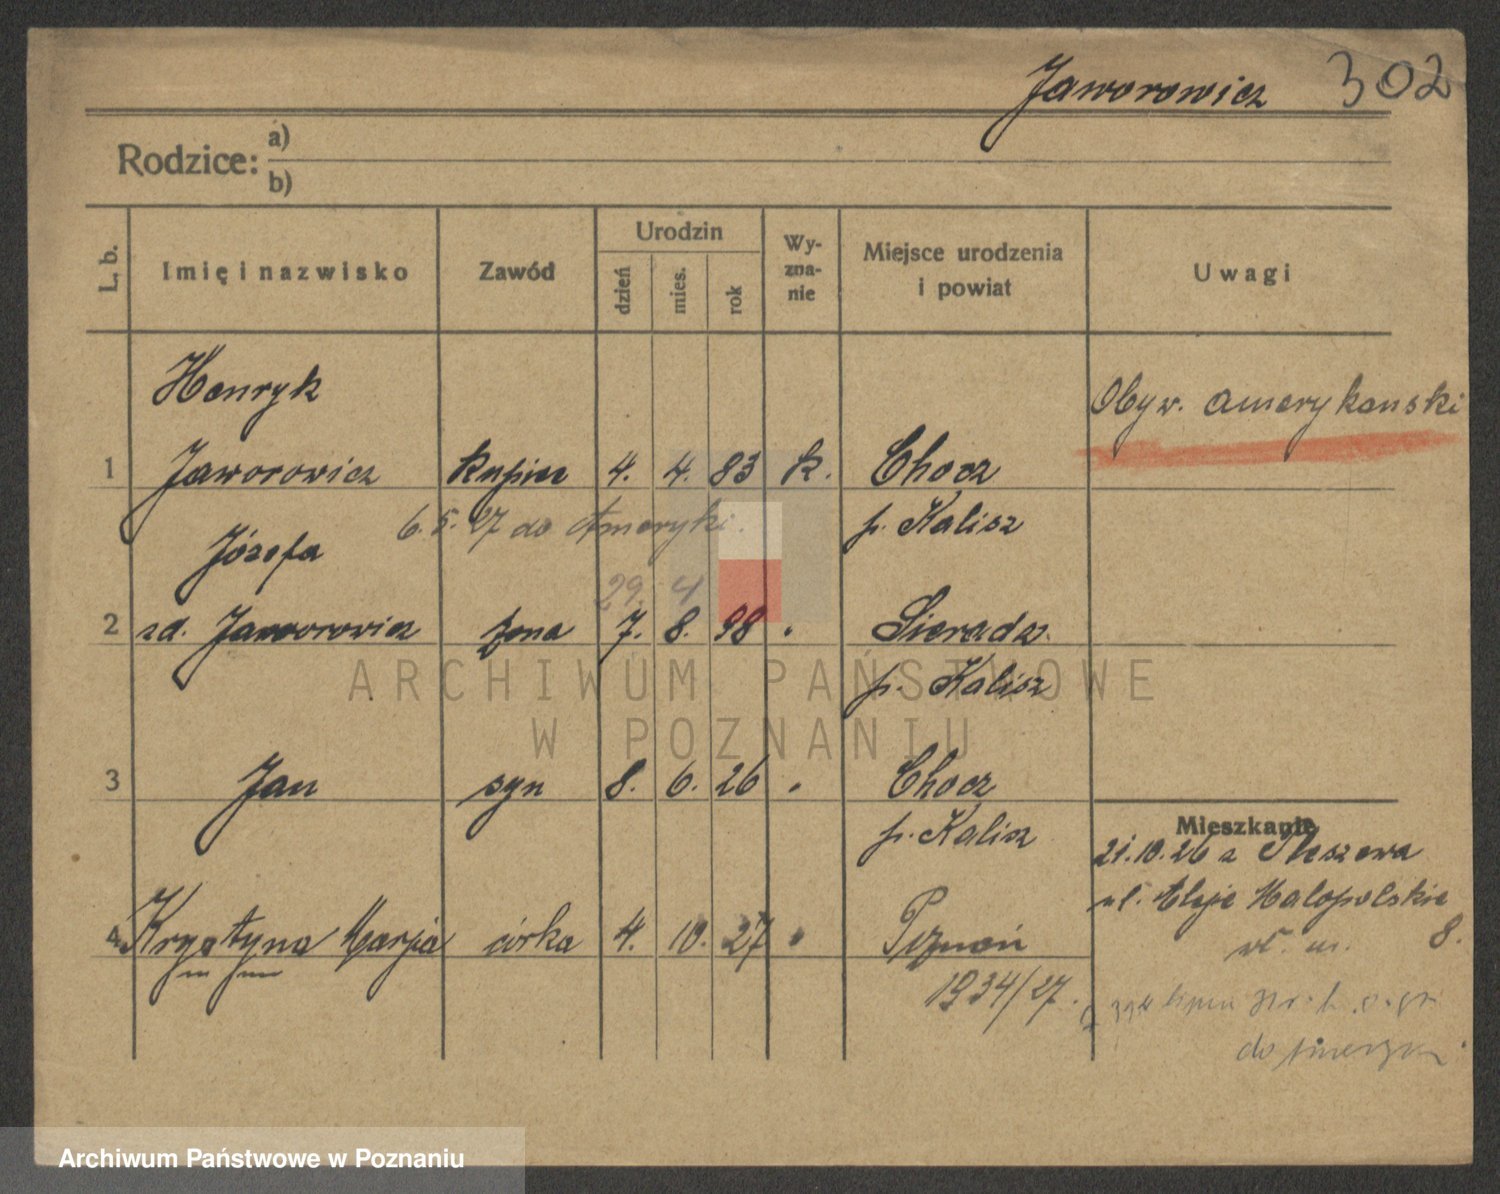 Jaworowicz 302
Rodzice: a)
b)
L. b. Imię i nazwisko Zawód Urodzin dzień mies. rok Wy-zna-nie Miejsce urodzenia i powiat Uwagi
Henryk
Obyw. amerykanski
1 Jaworowicz kupiec 4. 4. 83 k. Chocz
6. 5. 27 do Ameryki. p. Kalisz
Józefa
29. 4
2 zd. Jaworowicz żona 7. 8. 98 Sieradz.
p. Kalisz
ARCHIWUM PAŃSTWOWE
W POZNANIU
3 Jan syn 8. 6. 26 Chocz
p. Kalisz
Mieszkanie
21.10.26 z Pleszewa
ul. Aleje Małopolskie
8.
4 Krystyna Marja córka 4. 10. 27 Poznań
1934/27.
do
Archiwum Państwowe w Poznaniu